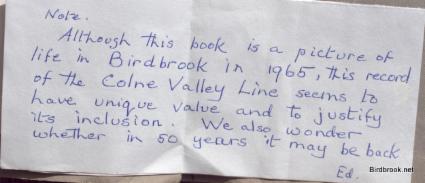 Note.
Although this book is a picture of
life in Birdbrook in 1965, this record
of the Colne Valley Line seems to
have unique value and to justify
its inclusion. We also wonder
whether in 50 years it may be back
Ed.
Birdbrook.net